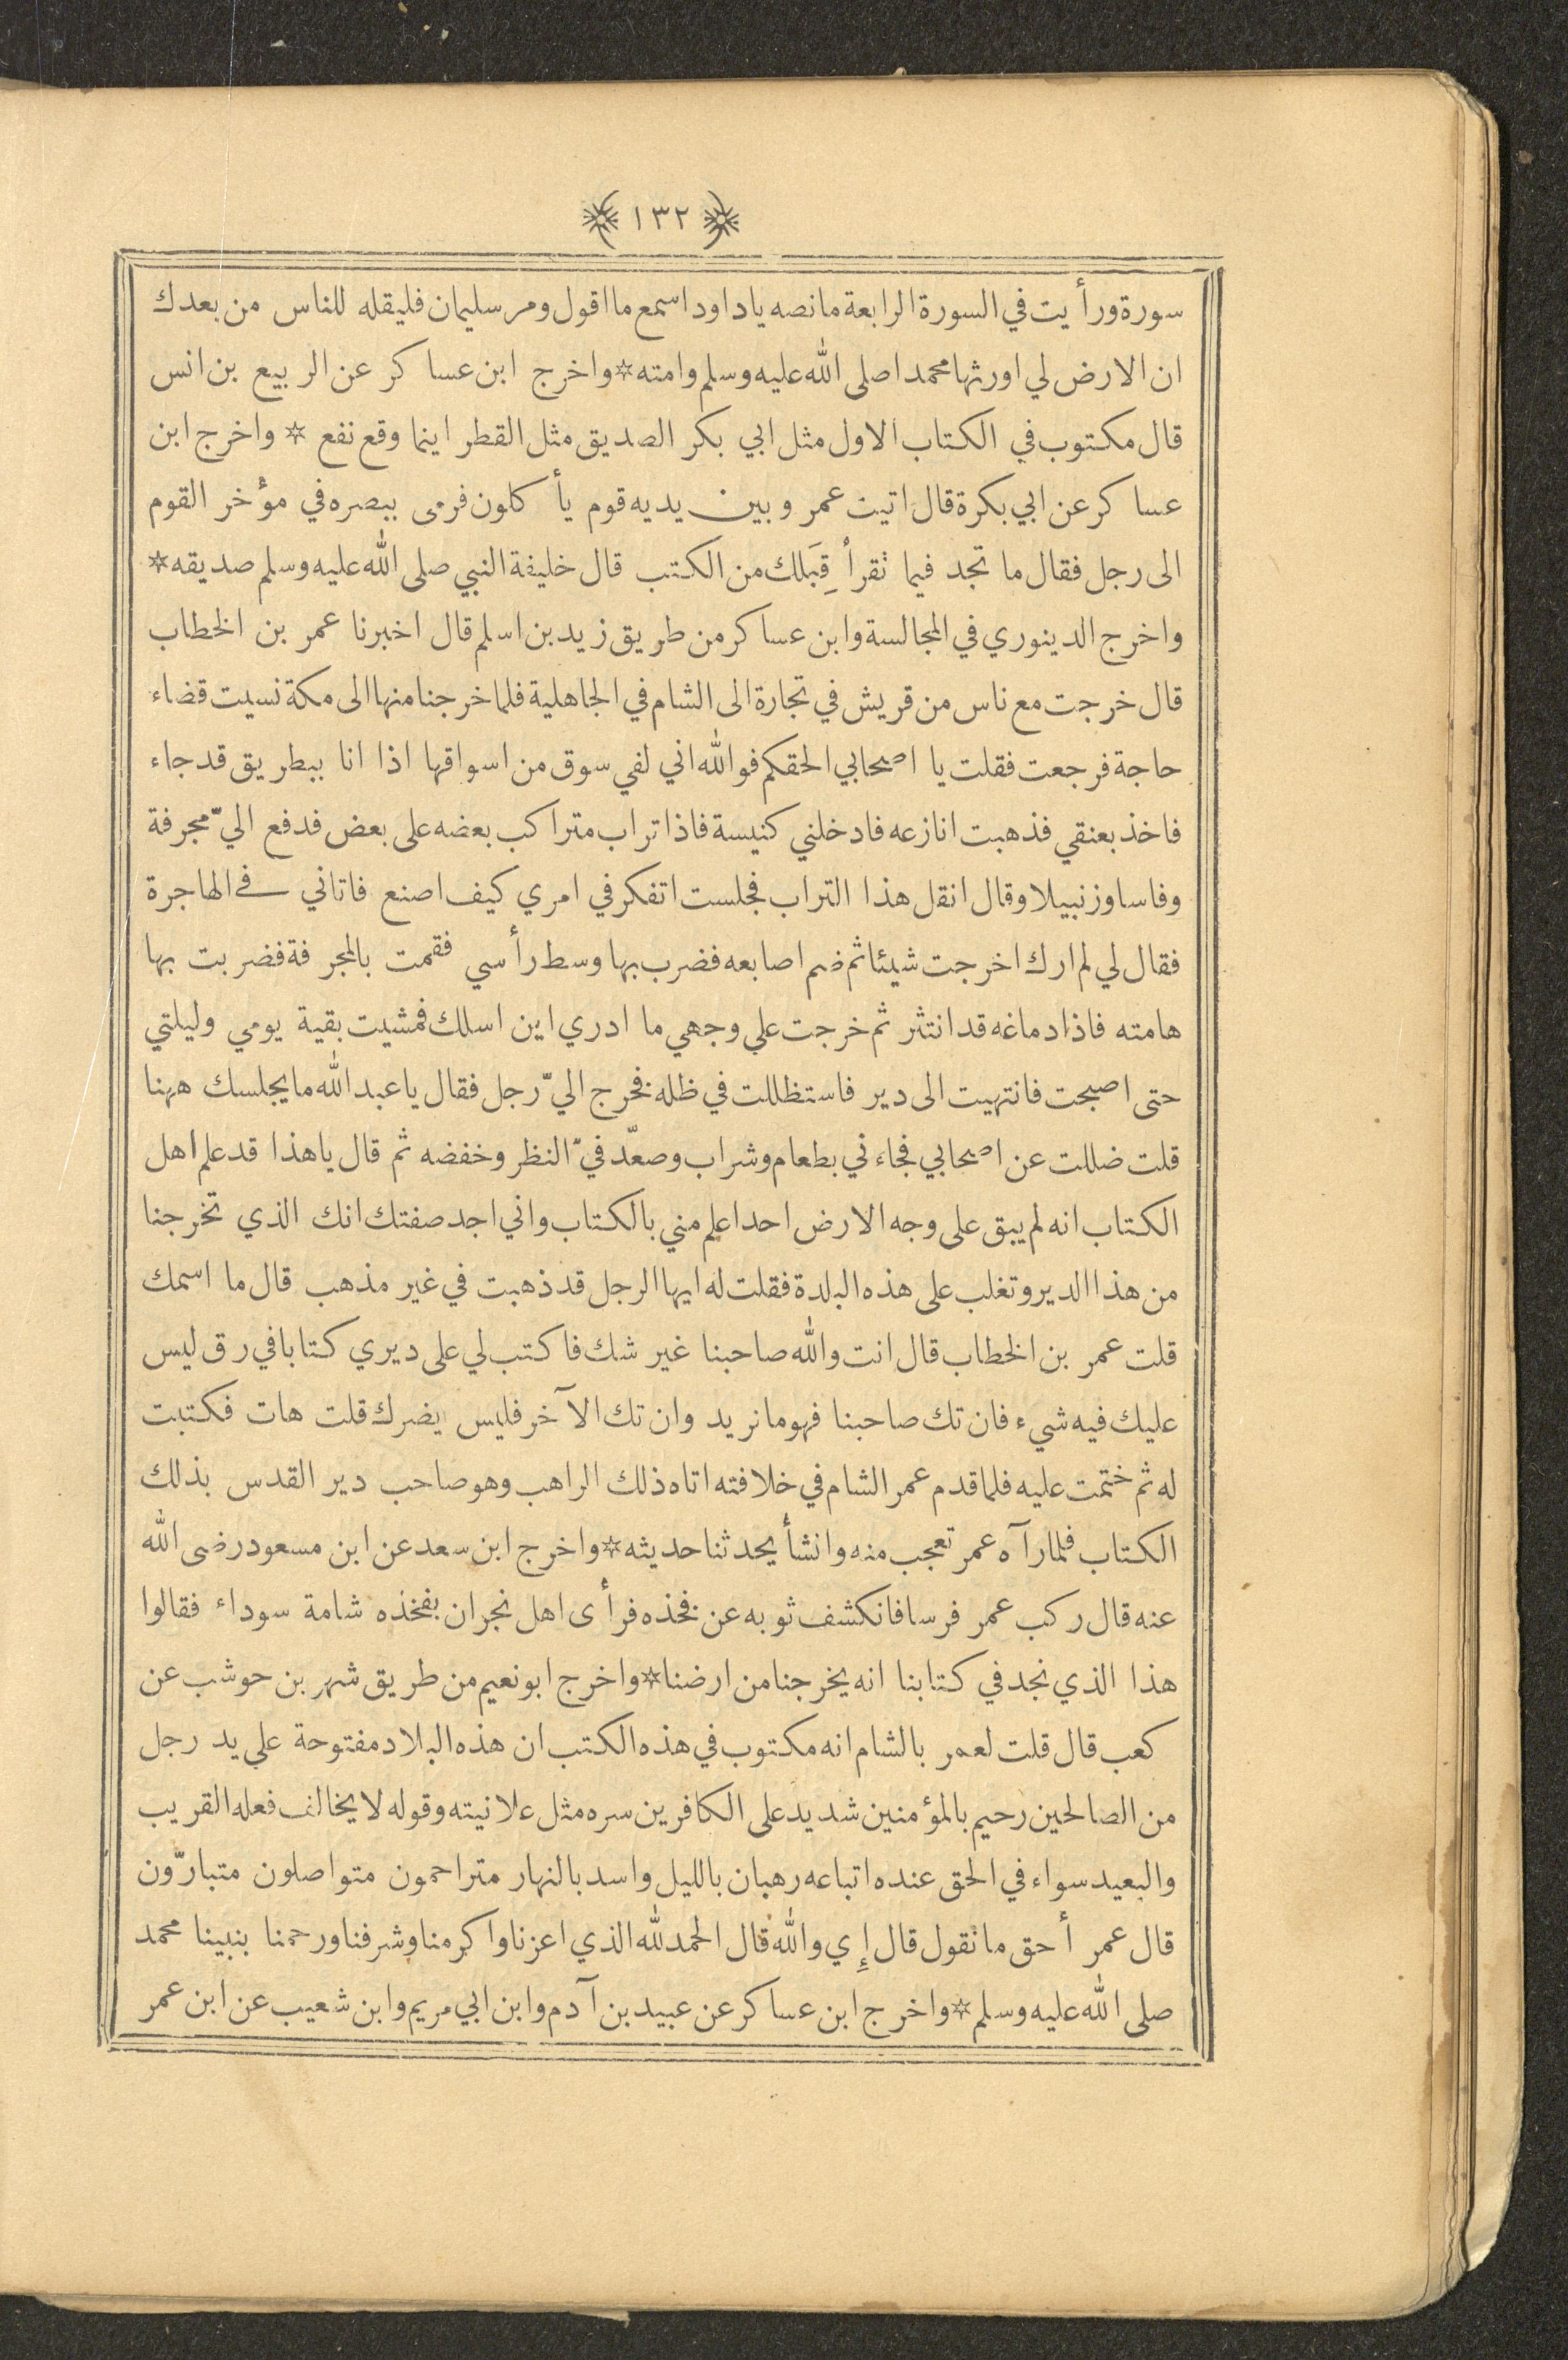 ١٣٢
سورة ورأيت في السورة الرابعة ما نصه ياداود اسمع ما اقول ومر سليمان فليقله للناس من بعدك
ان الارض لي اورثها محمدا صلى الله عليه وسلم وامته * واخرج ابن عساكر عن الربيع بن انس
قال مكتوب في الكتاب الاول مثل ابي بكر الصديق مثل القطر اينما وقع نفع * واخرج ابن
عساكر عن ابي بكرة قال اتيت عمر وبين يديه قوم يأكلون فرمى ببصره في مؤخر القوم
الى رجل فقال ما تجد فيما تقرأ قِبَلك من الكتب قال خليفة النبي صلى الله عليه وسلم صديقه *
واخرج الدينوري في المجالسة وابن عساكر من طريق زيد بن اسلم قال اخبرنا عمر بن الخطاب
قال خرجت مع ناس من قريش في تجارة الى الشام في الجاهلية فلما خرجنا منها الى مكة نسيت قضاء
حاجة فرجعت فقلت يا اصحابي الحقكم فوالله اني لفي سوق من اسواقها اذا انا ببطريق قد جاء
فاخذ بعنقي فذهبت انازعه فادخلني كنيسة فاذا تراب متراكب بعضه على بعض فدفع اليّ مجرفة
وفاسا وزنبيلا وقال انقل هذا التراب فجلست اتفكر في امري كيف اصنع فاتاني في الهاجرة
فقال لي لم ارك اخرجت شيئا ثم ضم اصابعه فضرب بها وسط رأسي فقمت بالمجرفة فضربت بها
هامته فاذا دماغه قد انتثر ثم خرجت على وجهي ما ادري اين اسلك فمشيت بقية يومي وليلتي
حتى اصبحت فانتهيت الى دير فاستظللت في ظله فخرج اليّ رجل فقال يا عبد الله ما يجلسك ههنا
قلت ضللت عن اصحابي فجاءني بطعام وشراب وصعّد فيّ النظر وخفضه ثم قال ياهذا قد علم اهل
الكتاب انه لم يبق على وجه الارض احد اعلم مني بالكتاب واني اجد صفتك انك الذي تخرجنا
من هذا الدير وتغلب على هذه البلدة فقلت له ايها الرجل قد ذهبت في غير مذهب قال ما اسمك
قلت عمر بن الخطاب قال انت والله صاحبنا غير شك فاكتب لي على ديري كتابا في رق ليس
عليك فيه شيء فان تك صاحبنا فهو ما نريد وان تك الآخر فليس يضرك قلت هات فكتبت
له ثم ختمت عليه فلما قدم عمر الشام في خلافته اتاه ذلك الراهب وهو صاحب دير القدس بذلك
الكتاب فلما رآه عمر تعجب منه وانشأ يحدثنا حديثه * واخرج ابن سعد عن ابن مسعود رضى الله
عنه قال ركب عمر فرسا فانكشف ثوبه عن فخذه فرأى اهل نجران بفخذه شامة سوداء فقالوا
هذا الذي نجد في كتابنا انه يخرجنا من ارضنا * واخرج ابو نعيم من طريق شهر بن حوشب عن
كعب قال قلت لعمر بالشام انه مكتوب في هذه الكتب ان هذه البلاد مفتوحة على يد رجل
من الصالحين رحيم بالمؤمنين شديد على الكافرين سره مثل علانيته وقوله لا يخالف فعله القريب
والبعيد سواء في الحق عنده اتباعه رهبان بالليل واسد بالنهار متراحمون متواصلون متبارّون
قال عمر أحق ما تقول قال إي والله قال الحمد لله الذي اعزنا واكرمنا وشرفنا ورحمنا بنبينا محمد
صلى الله عليه وسلم * واخرج ابن عساكر عن عبيد بن آدم وابن ابي مريم وابن شعيب عن ابن عمر